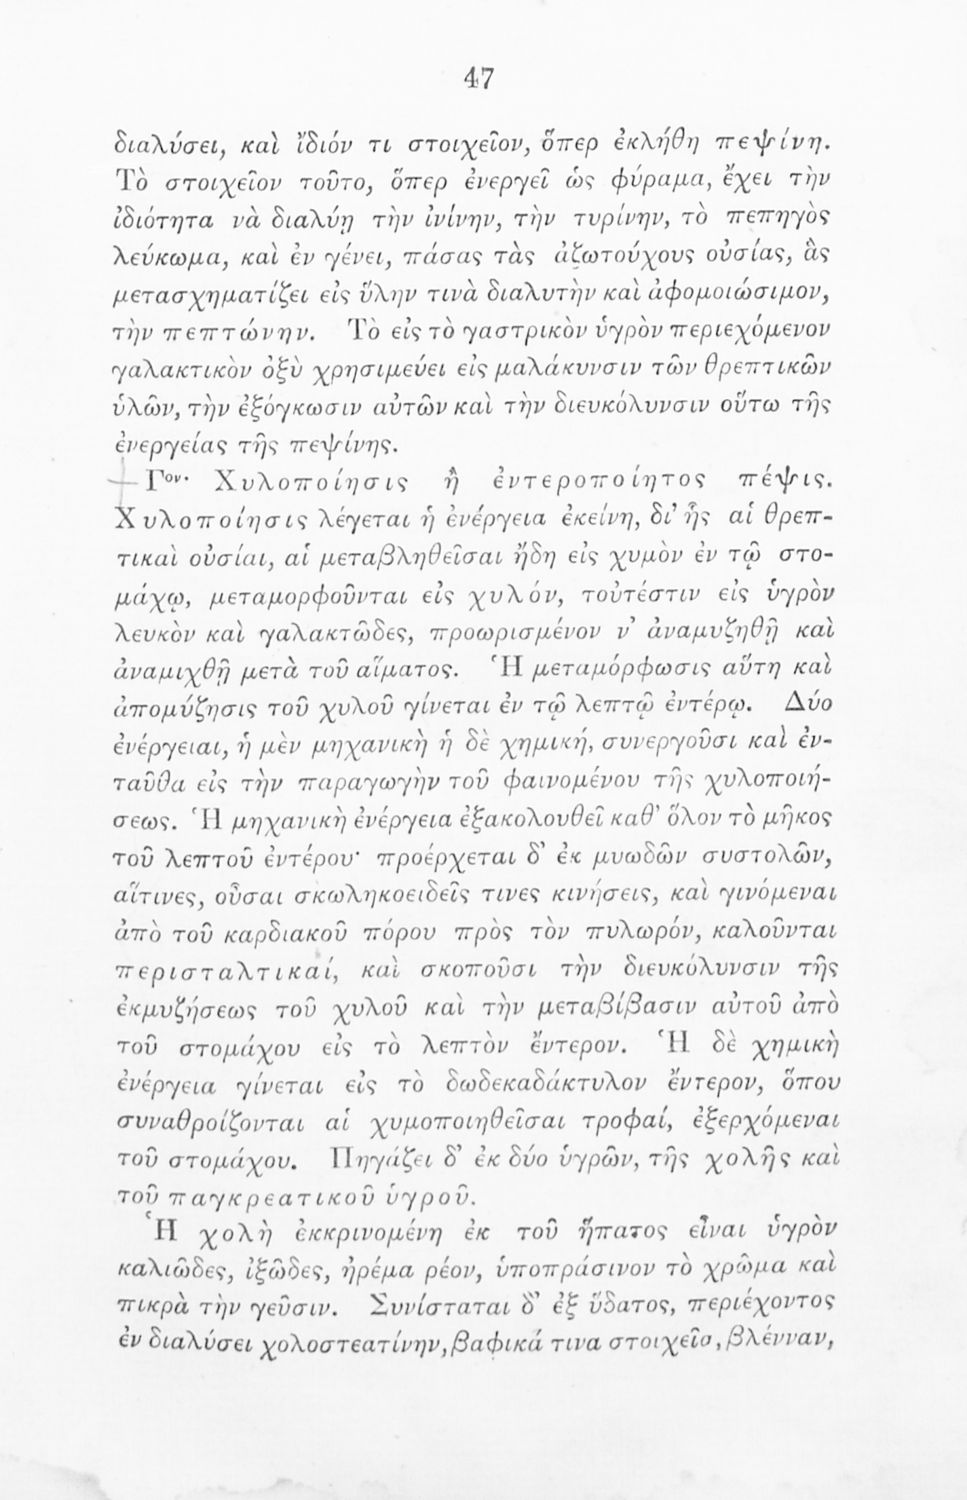 47
διαλύσει, καὶ ἴδιόν τι στοιχεῖον, ὅπερ ἐκλήθη πεψίνη.
Τὸ στοιχεῖον τοῦτο, ὅπερ ἐνεργεῖ ὡς φύραμα, ἔχει τὴν
ἰδιότητα νὰ διαλύῃ τὴν ἰνίνην, τὴν τυρίνην, τὸ πεπηγὸς
λεύκωμα, καὶ ἐν γένει, πάσας τὰς ἀζωτούχους οὐσίας, ἃς
μετασχηματίζει εἰς ὕλην τινὰ διαλυτὴν καὶ ἀφομοιώσιμον,
τὴν πεπτώνην. Τὸ εἰς τὸ γαστρικὸν ὑγρὸν περιεχόμενον
γαλακτικὸν ὀξὺ χρησιμεύει εἰς μαλάκυνσιν τῶν θρεπτικῶν
ὑλῶν, τὴν ἐξόγκωσιν αὐτῶν καὶ τὴν διευκόλυνσιν οὕτω τῆς
ἐνεργείας τῆς πεψίνης.
Γον· Χυλοποίησις ἢ ἐντεροποίητος πέψις.
Χυλοποίησις λέγεται ἡ ἐνέργεια ἐκείνη, δι' ἧς αἱ θρεπ-
τικαὶ οὐσίαι, αἱ μεταβληθεῖσαι ἤδη εἰς χυμὸν ἐν τῷ στο-
μάχῳ, μεταμορφοῦνται εἰς χυλόν, τοὐτέστιν εἰς ὑγρὸν
λευκὸν καὶ γαλακτῶδες, προωρισμένον ν' ἀναμυζηθῇ καὶ
ἀναμιχθῇ μετὰ τοῦ αἵματος. Ἡ μεταμόρφωσις αὕτη καὶ
ἀπομύζησις τοῦ χυλοῦ γίνεται ἐν τῷ λεπτῷ ἐντέρῳ. Δύο
ἐνέργειαι, ἡ μὲν μηχανικὴ ἡ δὲ χημική, συνεργοῦσι καὶ ἐν-
ταῦθα εἰς τὴν παραγωγὴν τοῦ φαινομένου τῆς χυλοποιή-
σεως. Ἡ μηχανικὴ ἐνέργεια ἐξακολουθεῖ καθ' ὅλον τὸ μῆκος
τοῦ λεπτοῦ ἐντέρου· προέρχεται δ' ἐκ μυωδῶν συστολῶν,
αἵτινες, οὖσαι σκωληκοειδεῖς τινες κινήσεις, καὶ γινόμεναι
ἀπὸ τοῦ καρδιακοῦ πόρου πρὸς τὸν πυλωρόν, καλοῦνται
περισταλτικαί, καὶ σκοποῦσι τὴν διευκόλυνσιν τῆς
ἐκμυζήσεως τοῦ χυλοῦ καὶ τὴν μεταβίβασιν αὐτοῦ ἀπὸ
τοῦ στομάχου εἰς τὸ λεπτὸν ἔντερον. Ἡ δὲ χημικὴ
ἐνέργεια γίνεται εἰς τὸ δωδεκαδάκτυλον ἔντερον, ὅπου
συναθροίζονται αἱ χυμοποιηθεῖσαι τροφαί, ἐξερχόμεναι
τοῦ στομάχου. Πηγάζει δ' ἐκ δύο ὑγρῶν, τῆς χολῆς καὶ
τοῦ παγκρεατικοῦ ὑγροῦ.
Ἡ χολὴ ἐκκρινομένη ἐκ τοῦ ἥπατος εἶναι ὑγρὸν
καλιῶδες, ἰξῶδες, ἠρέμα ρέον, ὑποπράσινον τὸ χρῶμα καὶ
πικρὰ τὴν γεῦσιν. Συνίσταται δ' ἐξ ὕδατος, περιέχοντος
ἐν διαλύσει χολοστεατίνην, βαφικά τινα στοιχεῖα, βλένναν,